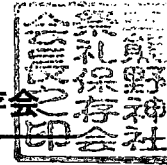 会
熊野神社
祭礼保存会
会長之印